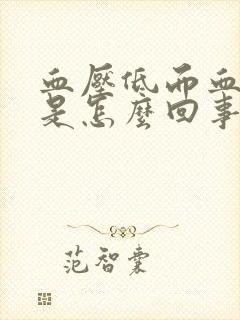 血壓低而血
是怎麼回事
范智裳